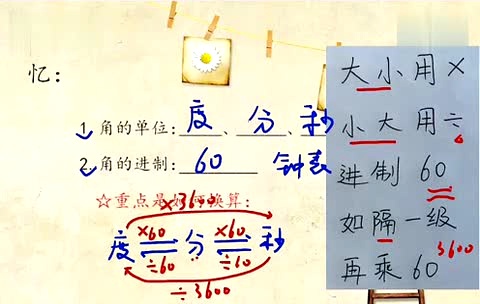 忆:
1.角的单位:度、分、秒
2.角的进制:60 钟表
☆重点是如何换算:
×3600
×60 ×60
度 分 秒
÷60 ÷60
÷3600
大小用×
小大用÷
进制60
如隔一级
3600
再乘60